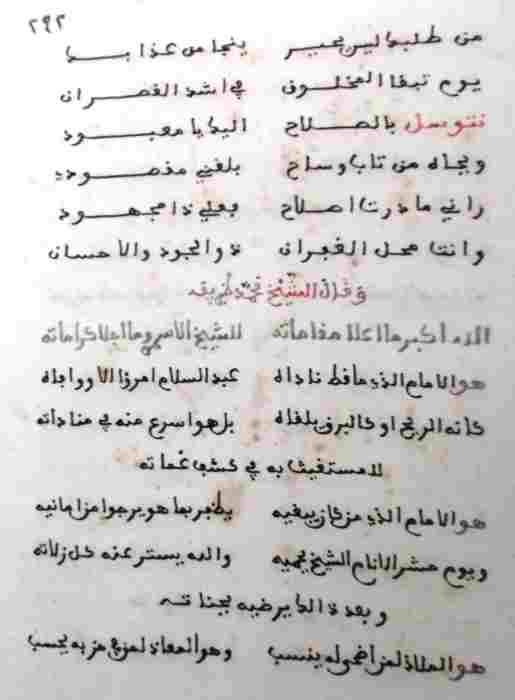 ٢٩٢
من طلبك ليس يحير ينجا من عذابك
يوم تبقا المخلوق في اشد الفصران
نتوسل بالصلاح اليك يا معبود
وبجاه من تاب وساح بلغني مقصودي
راني ما درت اصلاح بعلي ذا مجهود
وانت محل الغفران ذو الجود والاحسان
وقال الشيخ في طريقه
الله اكبر ما اعلا مقاماته للشيخ الاسمر وما اجلا كراماته
هو الامام الذي ما قط ناداه عبد السلام امرؤ الا ووافاه
كانه الريح او كالبرق يلقاه بل هو اسرع منه في مناداته
للمستغيث به في كشف غماته
هو الامام الذي من كان يبغيه يظفر بما هو يرجوا من امانيه
ويوم حشر الانام الشيخ يحميه والله يستر عنه كل زلاته
وبعد ذلك يرضيه بجناته
هو الملاذ لمن اضحى له ينسب وهو المعاذ لمن في حزبه يحسب